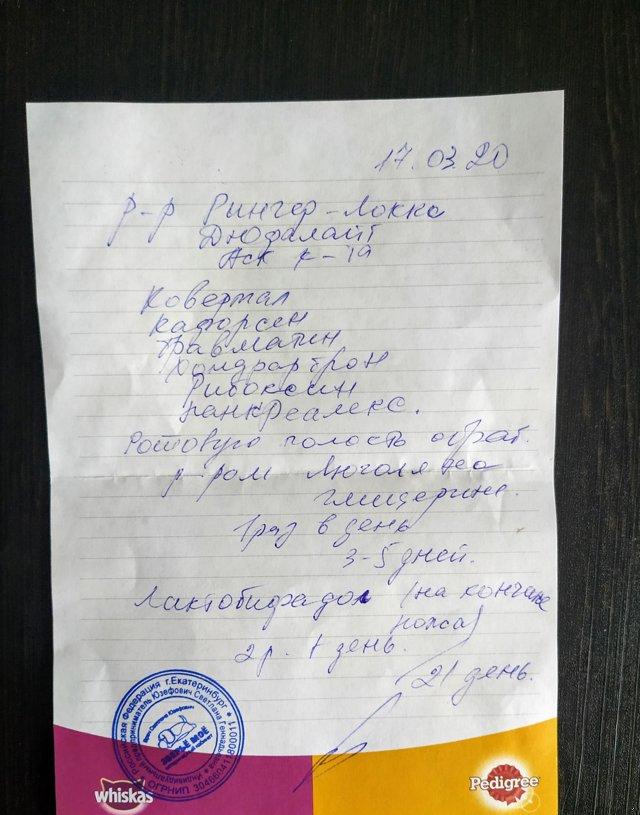 17.03.20
р-р Рингер-Локка
Дюфалайт
АСК к-та
Ковертал
Кафорсен
Травматин
Хондрартрон
Рибоксин
Панкреалекс.
Ротовую полость обраб.
р-ром Люголя на
глицерине.
1 раз в день
3-5 дней.
Лактобифадол (на кончике
ножа)
2 р. в день.
21 день.
Российская Федерация г.Екатеринбург
Индивидуальный предприниматель Юзефович Светлана Геннадьевна
ОГРНИП
whiskas
Pedigree